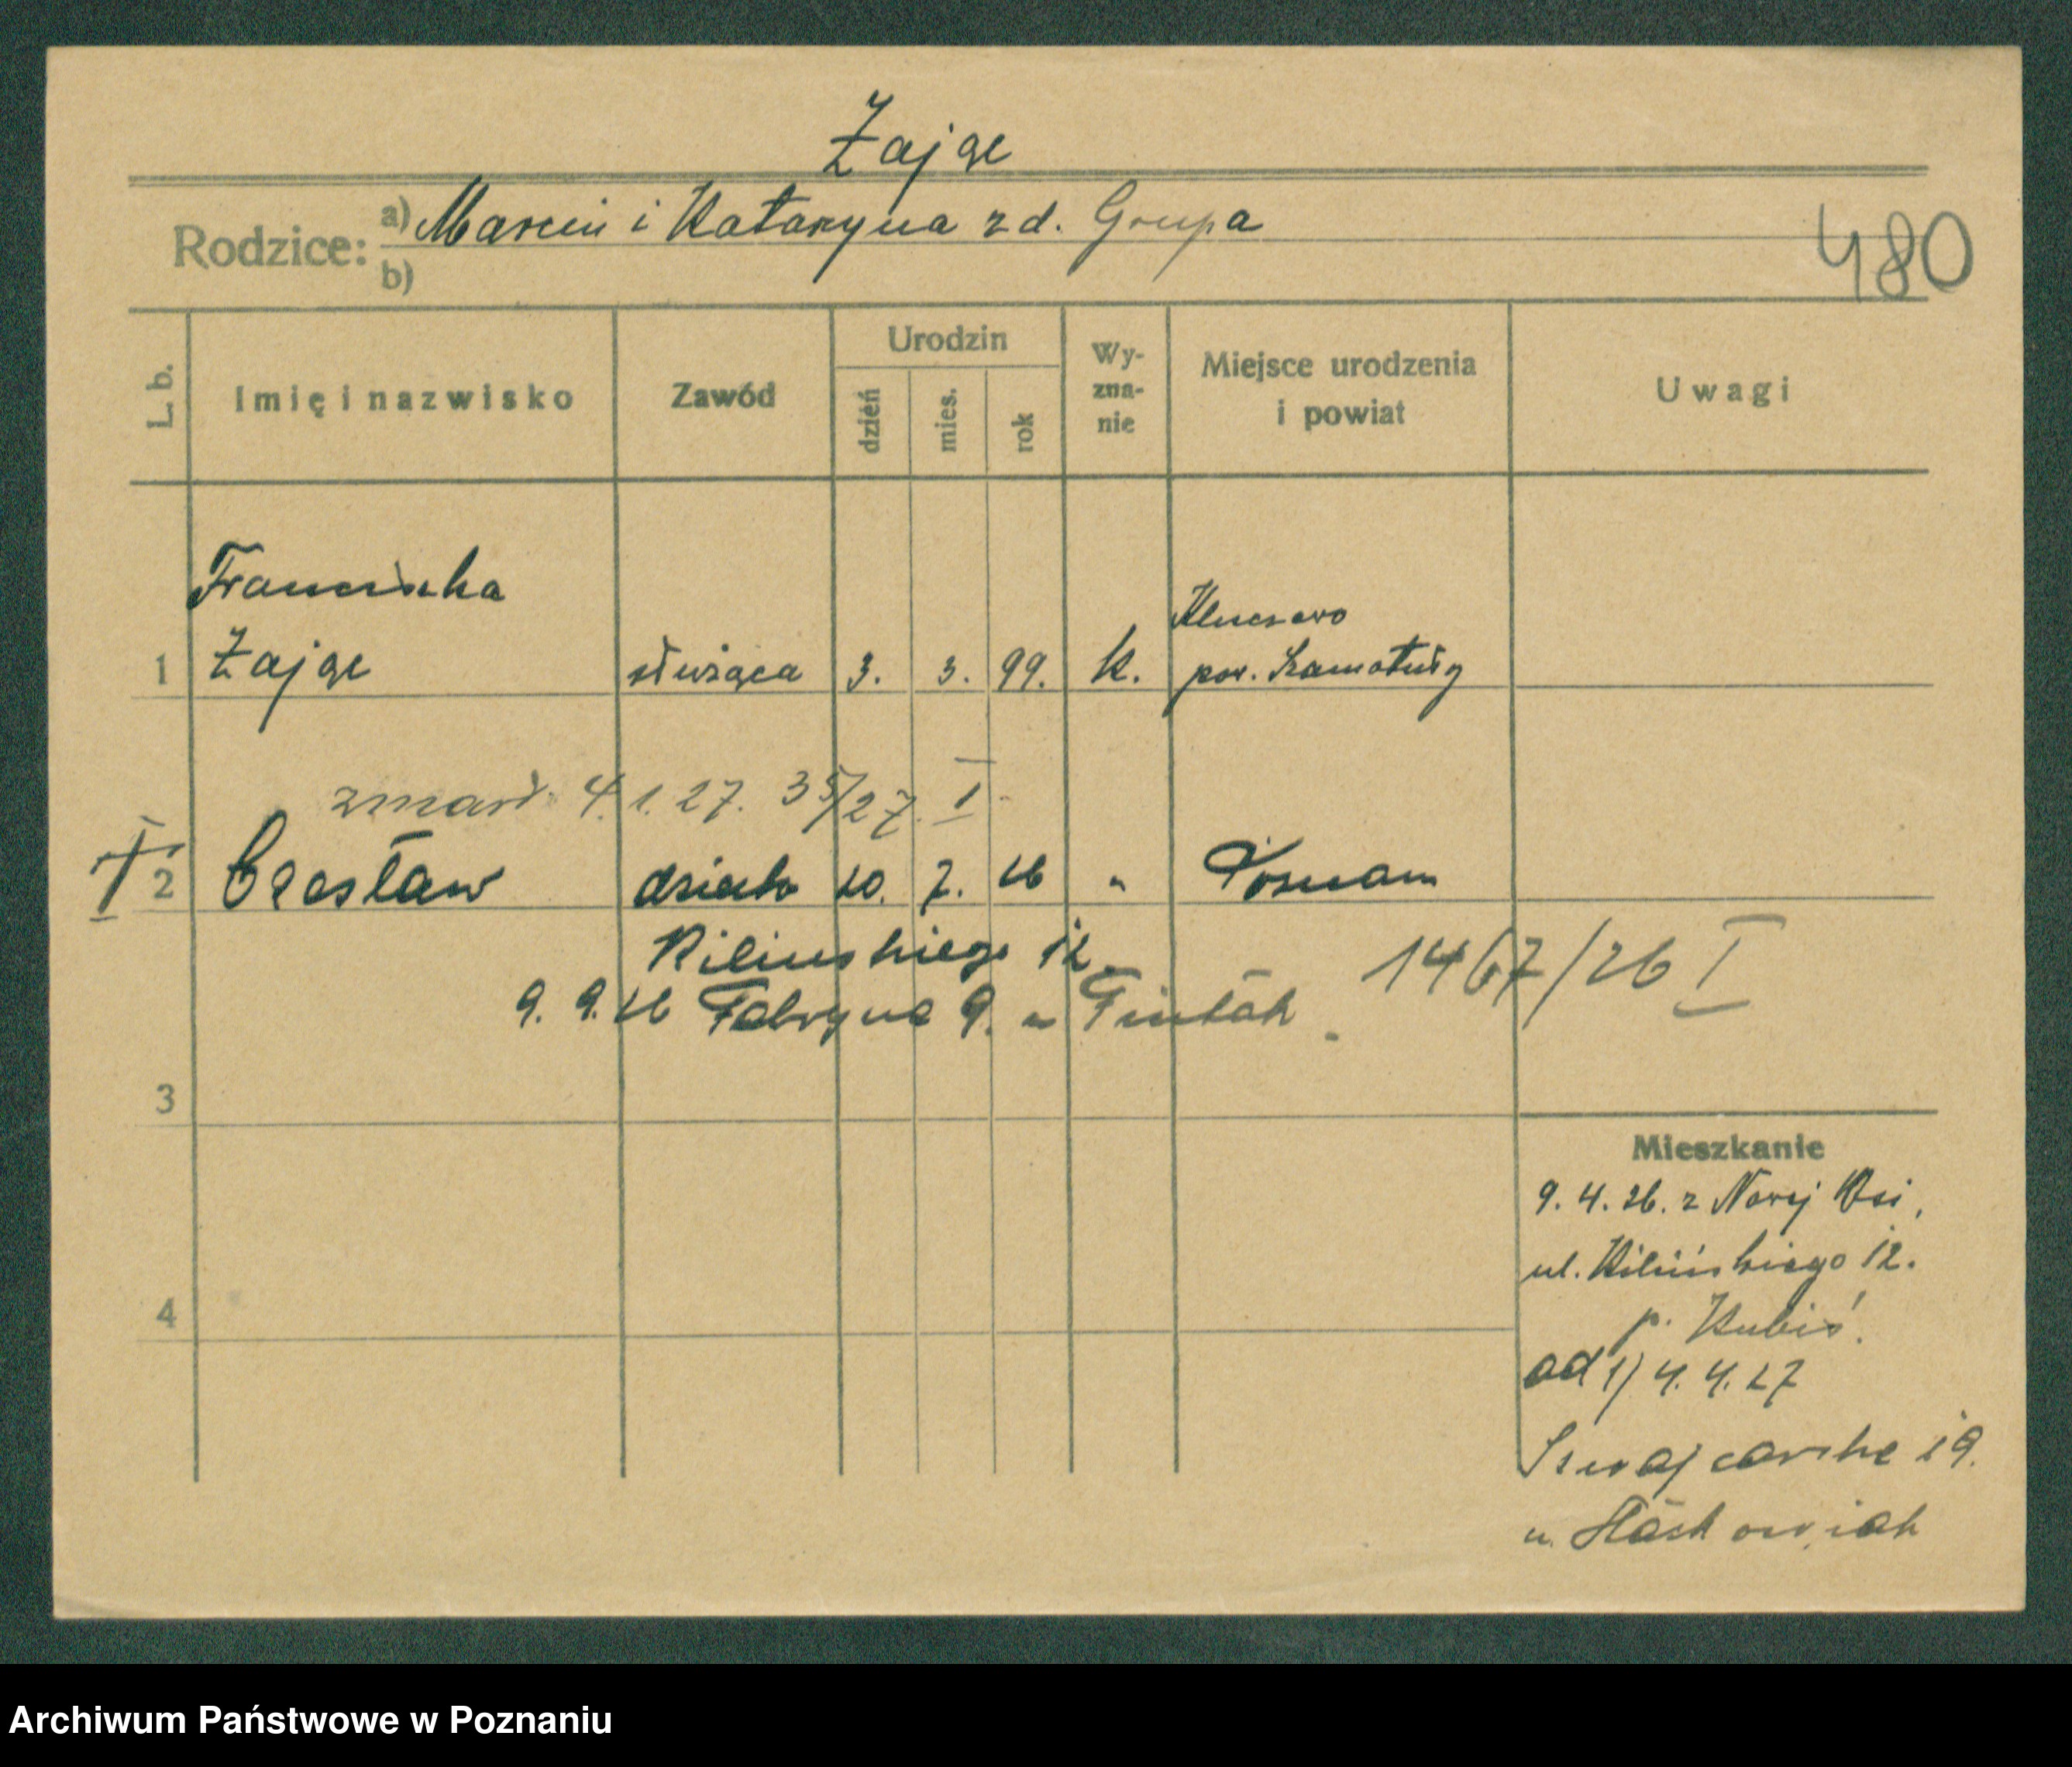 Zając
Rodzice: a) Marcin i Katarzyna z d. Grupa
b)
480
L. b. Imię i nazwisko Zawód Urodzin dzień mies. rok Wyznanie Miejsce urodzenia i powiat Uwagi
Franciszka
1 Zając służąca 3. 3. 99. k. pow. Szamotuły
zmarł 4.1.27. 35/27. I
2 Czesław dziecko 10. 7. 26 " Poznań
Kilińskiego 12.
9. 9. 26 Fabryczna 9. u
1467/26 I
3
Mieszkanie
9. 4. 26. z Nowej Wsi,
ul. Kilińskiego 12.
4
p. Kubiś.
ad 1) 4. 4. 27
Szwajcarska 19.
u.
Archiwum Państwowe w Poznaniu